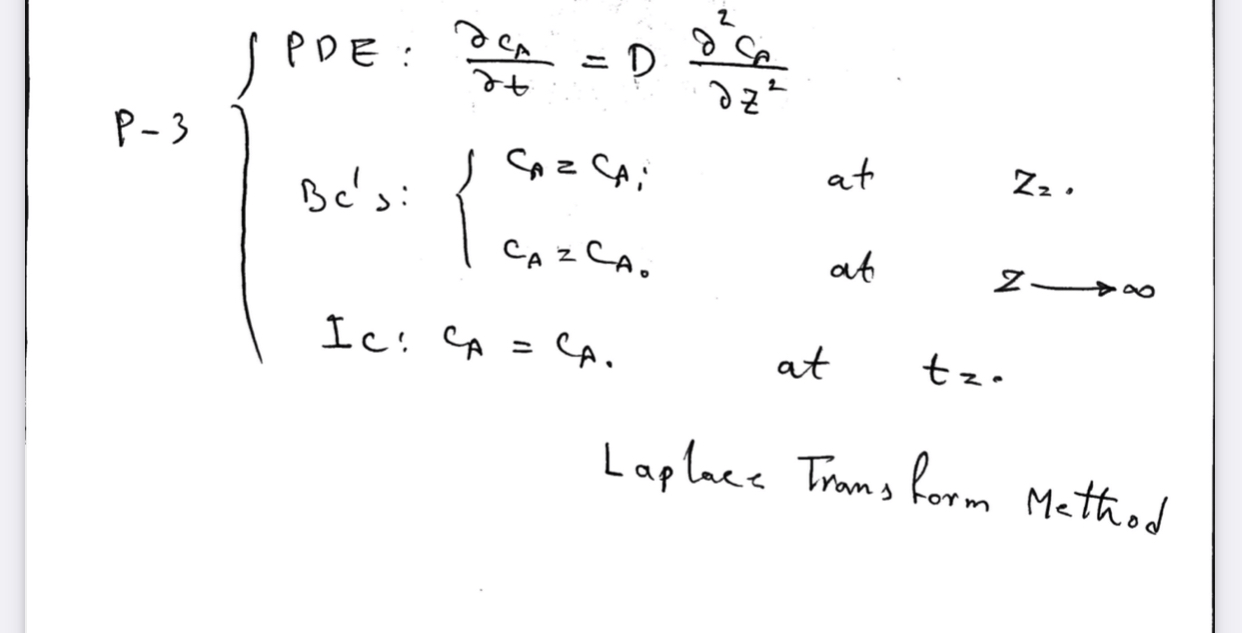 PDE: ∂C_A/∂t = D ∂²C_A/∂z²
P-3
Bc's: { C_A = C_Ai at z = 0
C_A = C_A0 at z → ∞
Ic: C_A = C_A0 at t = 0
Laplace Transform Method